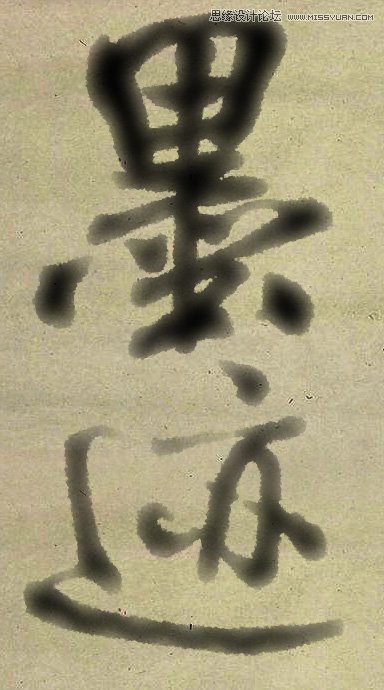 思缘设计论坛 WWW.MISSYUAN.COM
墨
迹